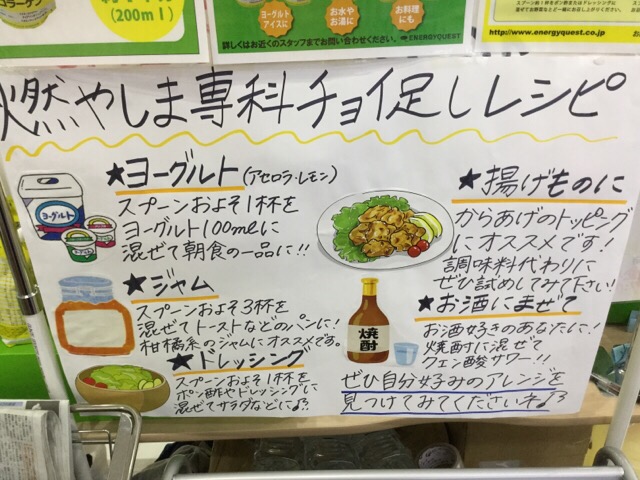 コラーゲン
(200ml)
ヨーグルト
アイスに
お水や
お湯に
お料理
にも
詳しくはお近くのスタッフまでお問い合わせください。
ENERGYQUEST
http://www.energyquest.co.jp
燃やしま専科チョイ足しレシピ
★ヨーグルト(アセロラ・レモン)
スプーンおよそ1杯を
ヨーグルト100mlに
混ぜて朝食の一品に!!
ヨーグルト
★ジャム
スプーンおよそ3杯を
混ぜてトーストなどのパンに!
柑橘系のジャムにオススメです。
★ドレッシング
スプーンおよそ1杯を
ポン酢やドレッシングに
混ぜてサラダなどに♪
★揚げものに
からあげのトッピング
にオススメです!
調味料代わりに
ぜひ試してみて下さい!
★お酒にまぜて
お酒好きのあなたに!
焼酎に混ぜて
クエン酸サワー!!
焼酎
ぜひ自分好みのアレンジを
見つけてみてくださいネ♪